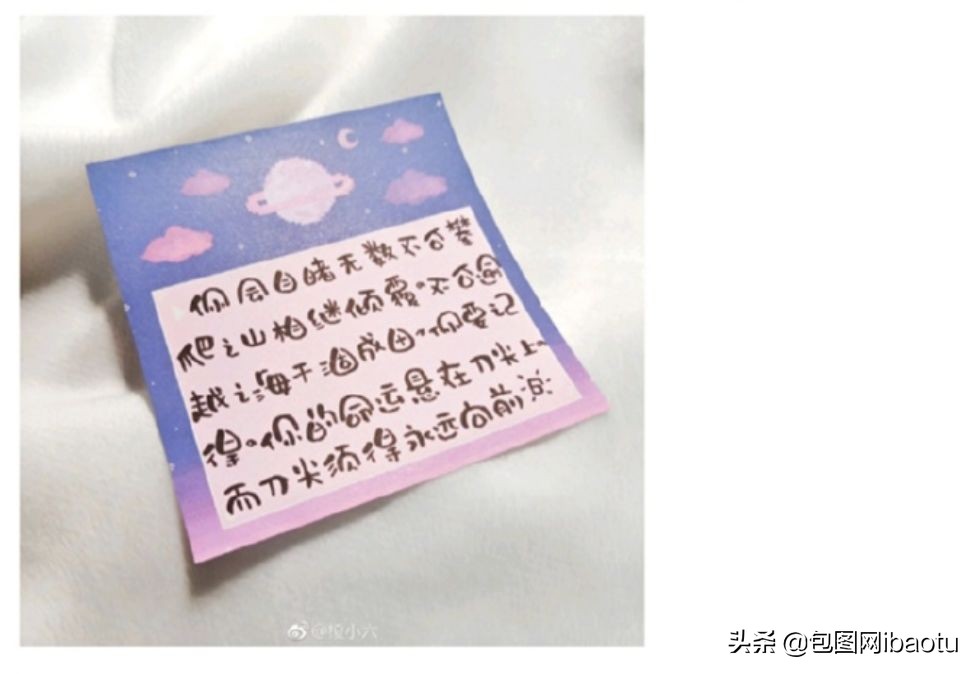 你会目睹无数不可攀
爬之山相继倾覆。不可逾
越之海干涸成田,你要记
得。你的命运悬在刀尖上。
而刀尖须得永远向前
头条 @包图网ibaotu